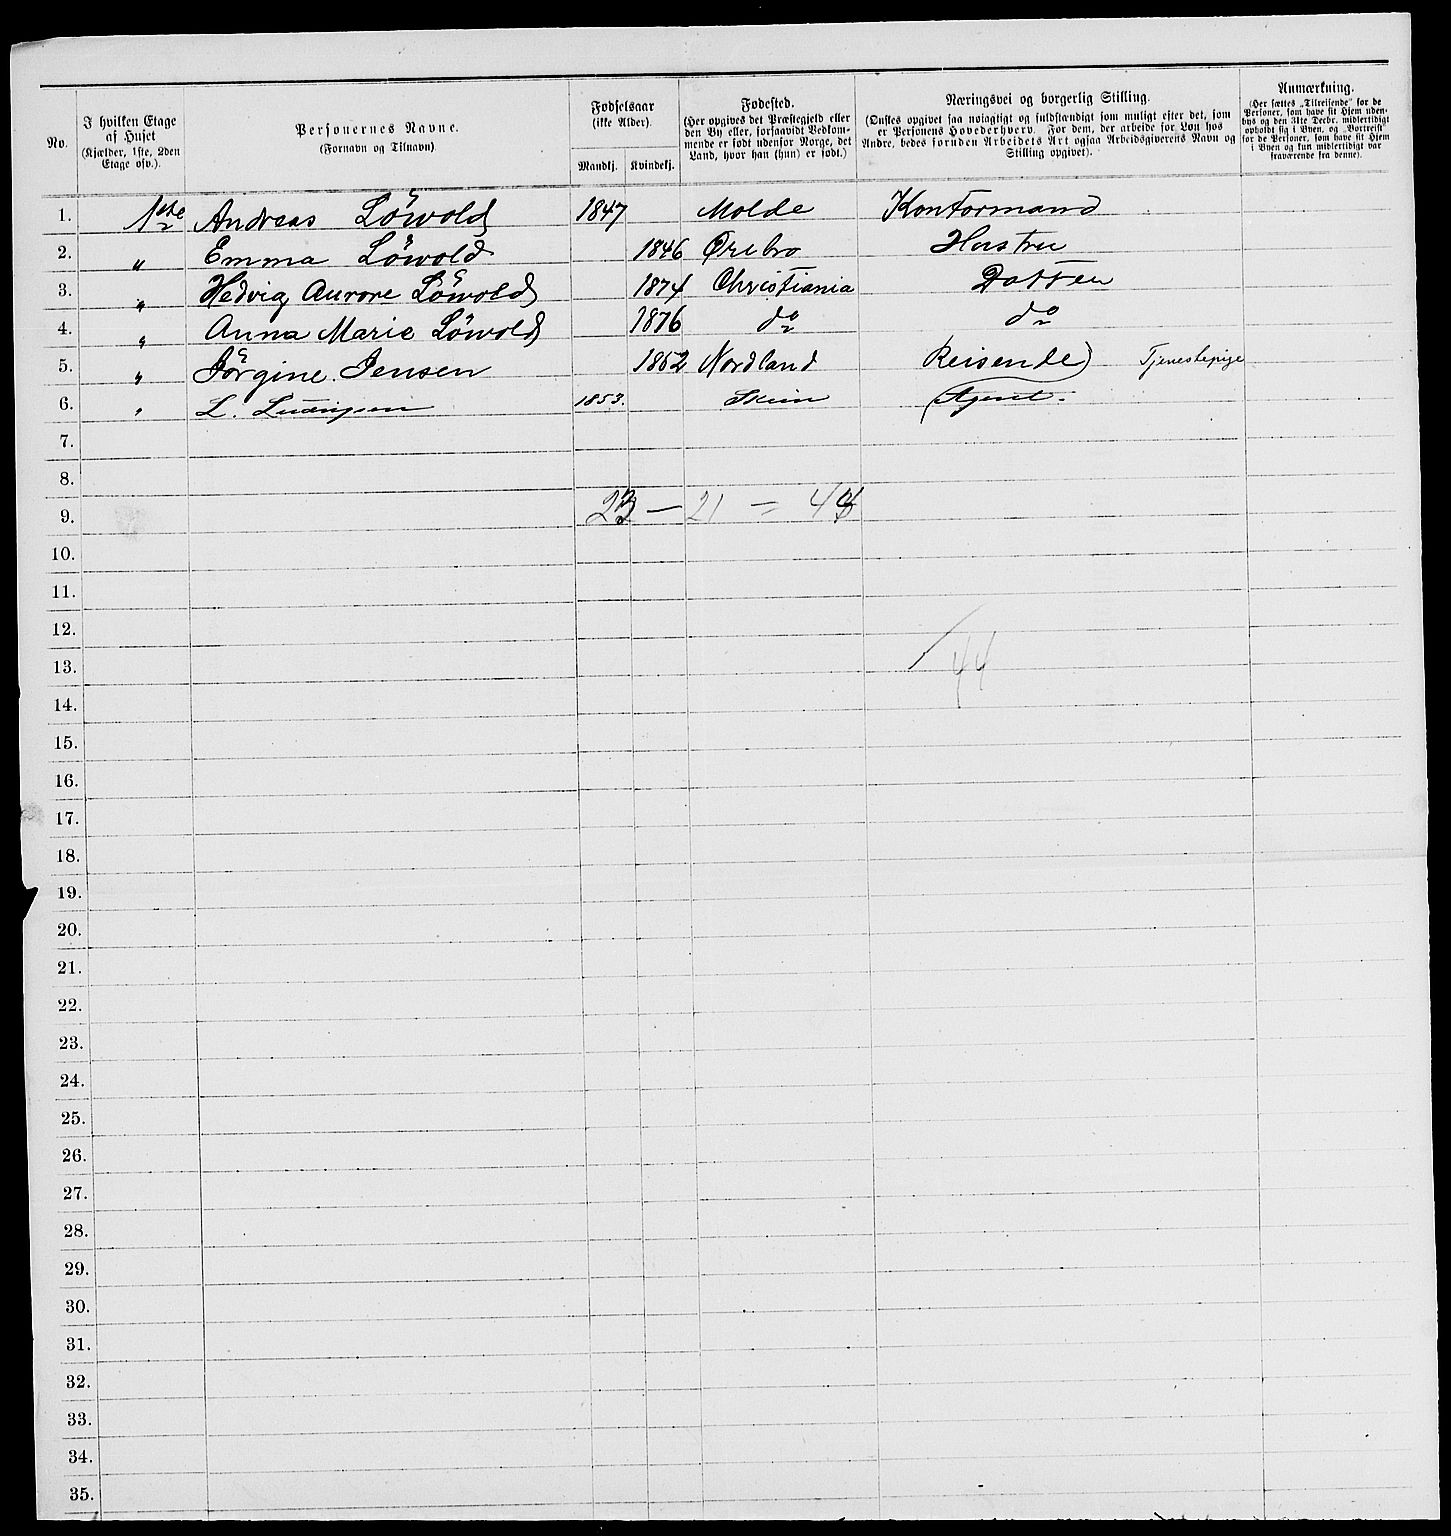 No.
I hvilken Etage
af Huset
(Kjælder, 1ste, 2den
Etage osv.).
Personernes Navne.
(Fornavn og Tilnavn).
Fødselsaar
(ikke Alder).
Mandkj. Kvindekj.
Fødested.
(Her opgives det Præstegjeld eller
den By eller, forsaavidt Vedkom-
mende er født udenfor Norge, det
Land, hvor han (hun) er født.)
Næringsvei og borgerlig Stilling.
(Ønskes opgivet saa nøiagtigt og fuldstændigt som muligt efter det, som
er Personens Hovederhverv. For dem, der arbeide for Løn hos
Andre, bedes foruden Arbeidets Art ogsaa Arbeidsgiverens Navn og
Stilling opgivet).
Anmærkning.
(Her sættes „Tilreisende" for de
Personer, som have sit Hjem uden-
bys og den 31te Decbr. midlertidigt
opholdt sig i Byen, og „Bortreist"
for de Personer, som have sit Hjem
i Byen og kun midlertidigt var
fraværende fra denne).
1. 1ste Andreas Löwold 1847 Molde Kontormand
2. " Emma Löwold 1846 Ørebro Hustru
3. " Hedvig Aurore Löwold 1874 Christiania Datter
4. " Anna Marie Löwold 1876 do do
5. " Jörgine Jensen 1862 Nordland Reisende) Tjenestepige
6. " L. 1853. Skien (Agent.
7.
8.
9. 23 — 21 = 44
10.
11.
12.
13. 44
14.
15.
16.
17.
18.
19.
20.
21.
22.
23.
24.
25.
26.
27.
28.
29.
30.
31.
32.
33.
34.
35.